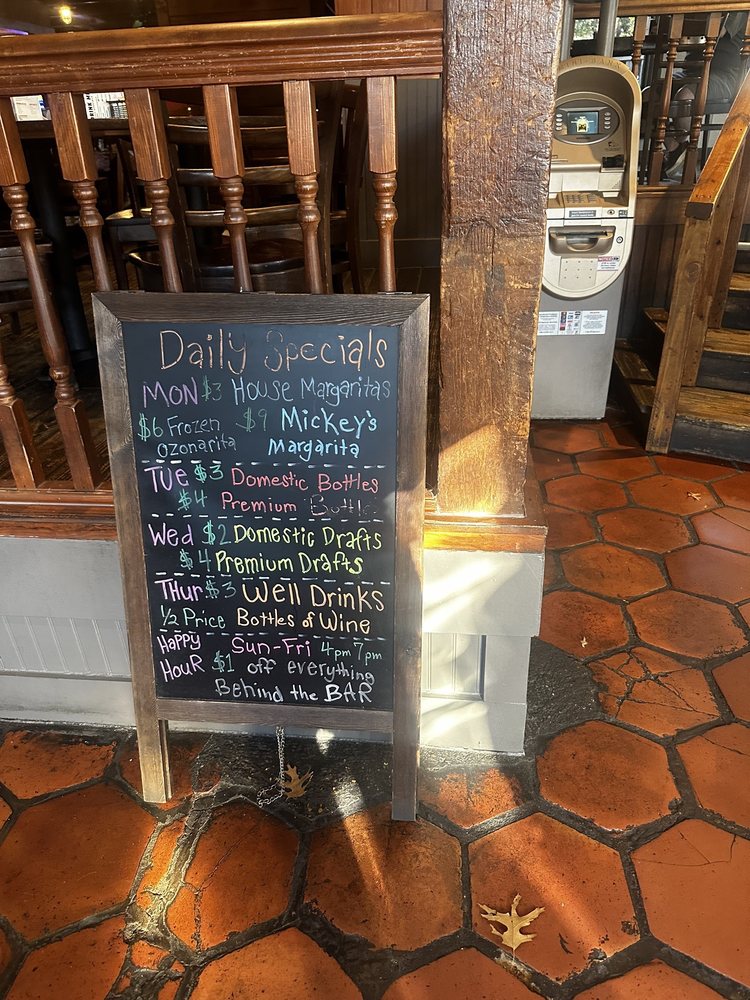 Daily Specials
MON $3 House Margaritas
$6 Frozen Ozonarita $9 Mickey's Margarita
TUE $3 Domestic Bottles
$4 Premium Bottle
Wed $2 Domestic Drafts
$4 Premium Drafts
THUR $3 Well Drinks
1/2 Price Bottles of Wine
Happy Hour Sun-Fri 4pm 7pm
$1 off everything
Behind the BAR